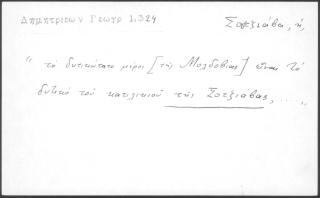 Δημητριεων Γεωγρ 1.324
Σοτζιάβα, ἡ,
"τὸ δυτικώτατο μέρος [τῆς Μολδοβίας] εἶναι τὸ
δυτικὸ τοῦ κατιλικιοῦ τῆς Σοτζιάβας, ....."